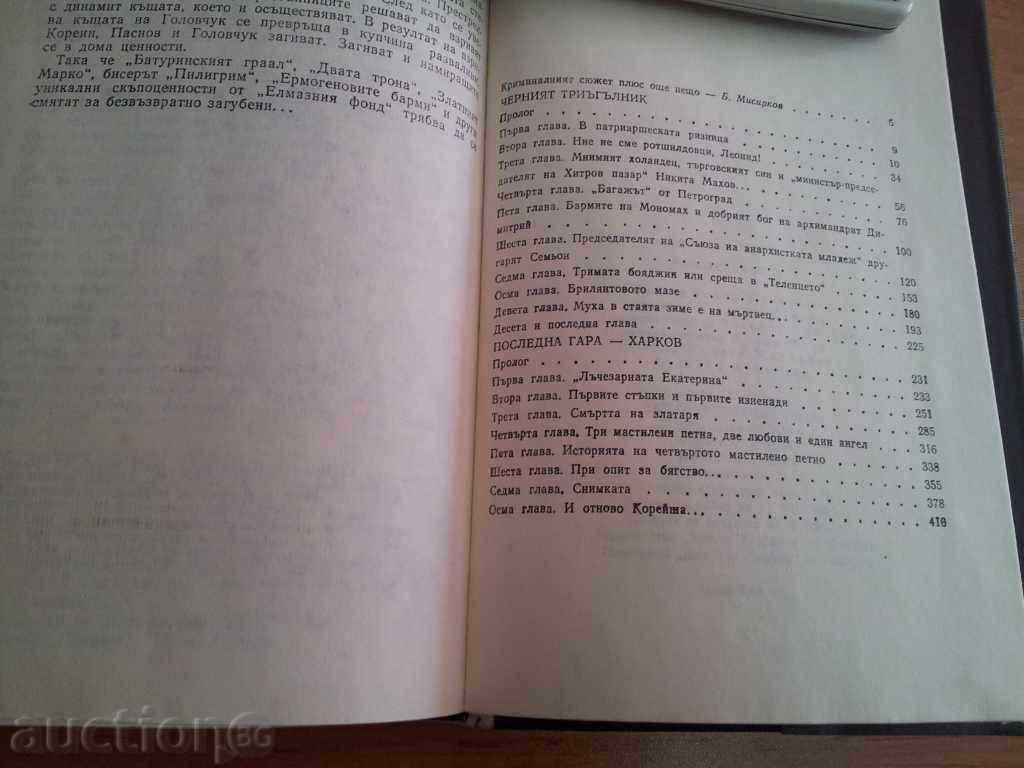 с динамит къщата, което и осъществяват. В резултат на
ва къщата на Головчук се превръща в купчина развалини.
Кореин, Паснов и Головчук загиват. Загиват и намиращите
се в дома ценности.
Така че „Батуринският граал", „Двата трона", „Златният
Марко", бисерът „Пилигрим", „Ермогеновите барми" и други
уникални скъпоценности от „Елмазния фонд" трябва да се
смятат за безвъзвратно загубени...
Криминалният сюжет плюс още нещо — Б. Мисирков . . . . 5
ЧЕРНИЯТ ТРИЪГЪЛНИК
Пролог . . . . . . . . . . 9
Първа глава. В патриаршеската ризница . . . . . . 10
Втора глава. Ние не сме ротшилдовци, Леонид! . . . . . 34
Трета глава. Мнимият холандец, търговският син и „министър-предсе-
дателят на Хитров пазар" Никита Махов... . . . . . 56
Четвърта глава. „Багажът" от Петроград . . . . . . 76
Пета глава. Бармите на Мономах и добрият бог на архимандрит Ди-
митрий . . . . . . . . . . 100
Шеста глава. Председателят на „Съюза на анархистката младеж" дру-
гарят Семьон . . . . . . . . . 120
Седма глава. Тримата бояджии или среща в „Теленцето" . . . . 153
Осма глава. Брилянтовото мазе . . . . . . . . 180
Девета глава. Муха в стаята зиме е на мъртвец... . . . . 193
Десета и последна глава . . . . . . . . . 225
ПОСЛЕДНА ГАРА — ХАРКОВ
Пролог . . . . . . . . . . 231
Първа глава. „Лъчезарната Екатерина" . . . . . . 233
Втора глава. Първите стъпки и първите изненади . . . . . 251
Трета глава. Смъртта на златаря . . . . . . . 285
Четвърта глава. Три мастилени петна, две любови и един ангел . . . 316
Пета глава. Историята на четвъртото мастилено петно . . . . 338
Шеста глава. При опит за бягство... . . . . . . 355
Седма глава. Снимката . . . . . . . . . 378
Осма глава. И отново Корейша... . . . . . . . 410
auction BG